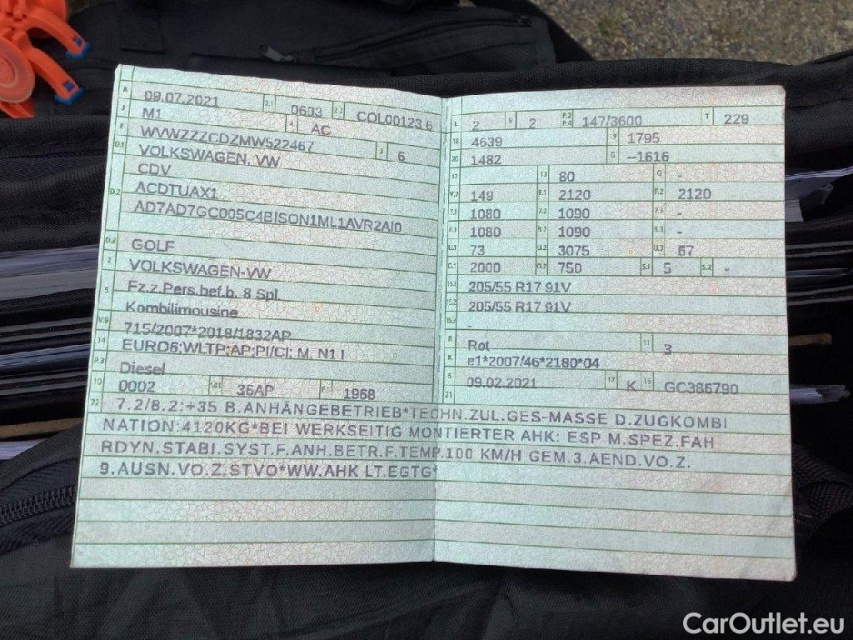 09.07.2021 0603 COL00123 6
M1 AC
WVWZZZCDZMW522467 6
VOLKSWAGEN, VW
CDV
ACDTUAX1
AD7AD7GC005C4BISON1ML1AVR2AI0
GOLF
VOLKSWAGEN-VW
Fz.z.Pers.bef.b. 8 Spl.
Kombilimousine
715/2007*2018/1832AP
EURO6;WLTP;AP;PI/CI; M, N1 I
Diesel
0002 36AP 1968
2 2 147/3600 229
4639 1795
1482 -1616
80 -
149 2120 2120
1080 1090 -
1080 1090 -
73 3075 67
2000 750 5 -
205/55 R17 91V
205/55 R17 91V
-
Rot 3
e1*2007/46*2180*04
09.02.2021 K GC386790
7.2/8.2:+35 B.ANHÄNGEBETRIEB*TECHN.ZUL.GES-MASSE D.ZUGKOMBI
NATION:4120KG*BEI WERKSEITIG MONTIERTER AHK: ESP M.SPEZ.FAH
RDYN.STABI.SYST.F.ANH.BETR.F.TEMP.100 KM/H GEM.3.AEND.VO.Z.
9.AUSN.VO.Z.STVO*WW.AHK LT.EGTG*
CarOutlet.eu